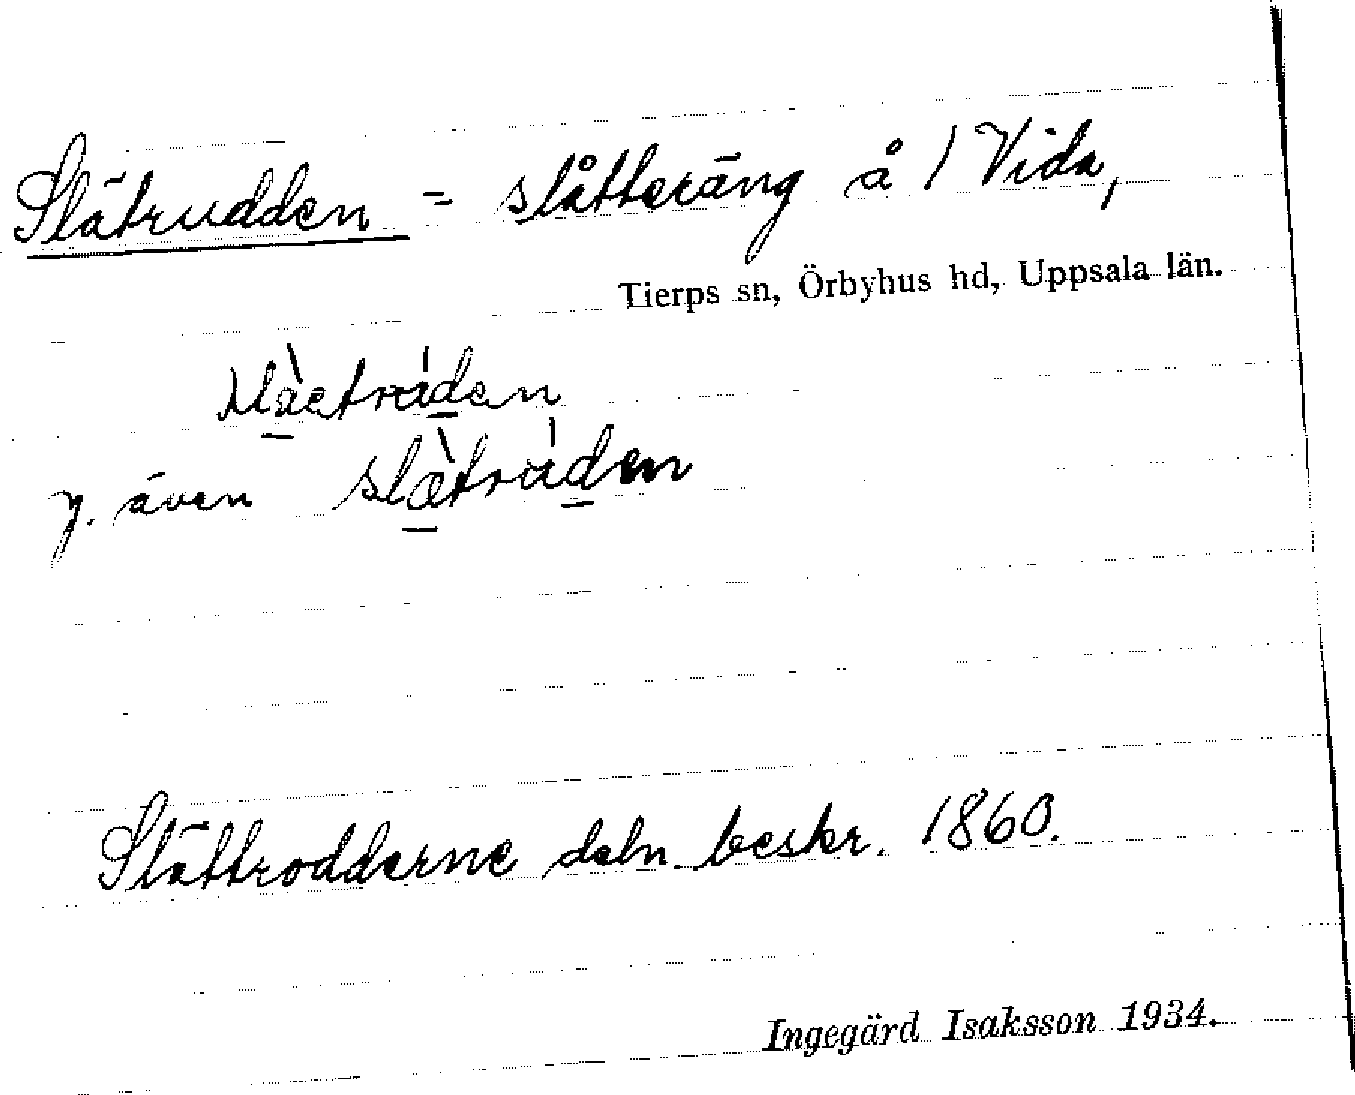 Slätrudden = slåtteräng å 1 Vida,
Tierps sn, Örbyhus hd, Uppsala län.
y. även
Slättrodderne deln. beskr. 1860.
Ingegärd Isaksson 1934.